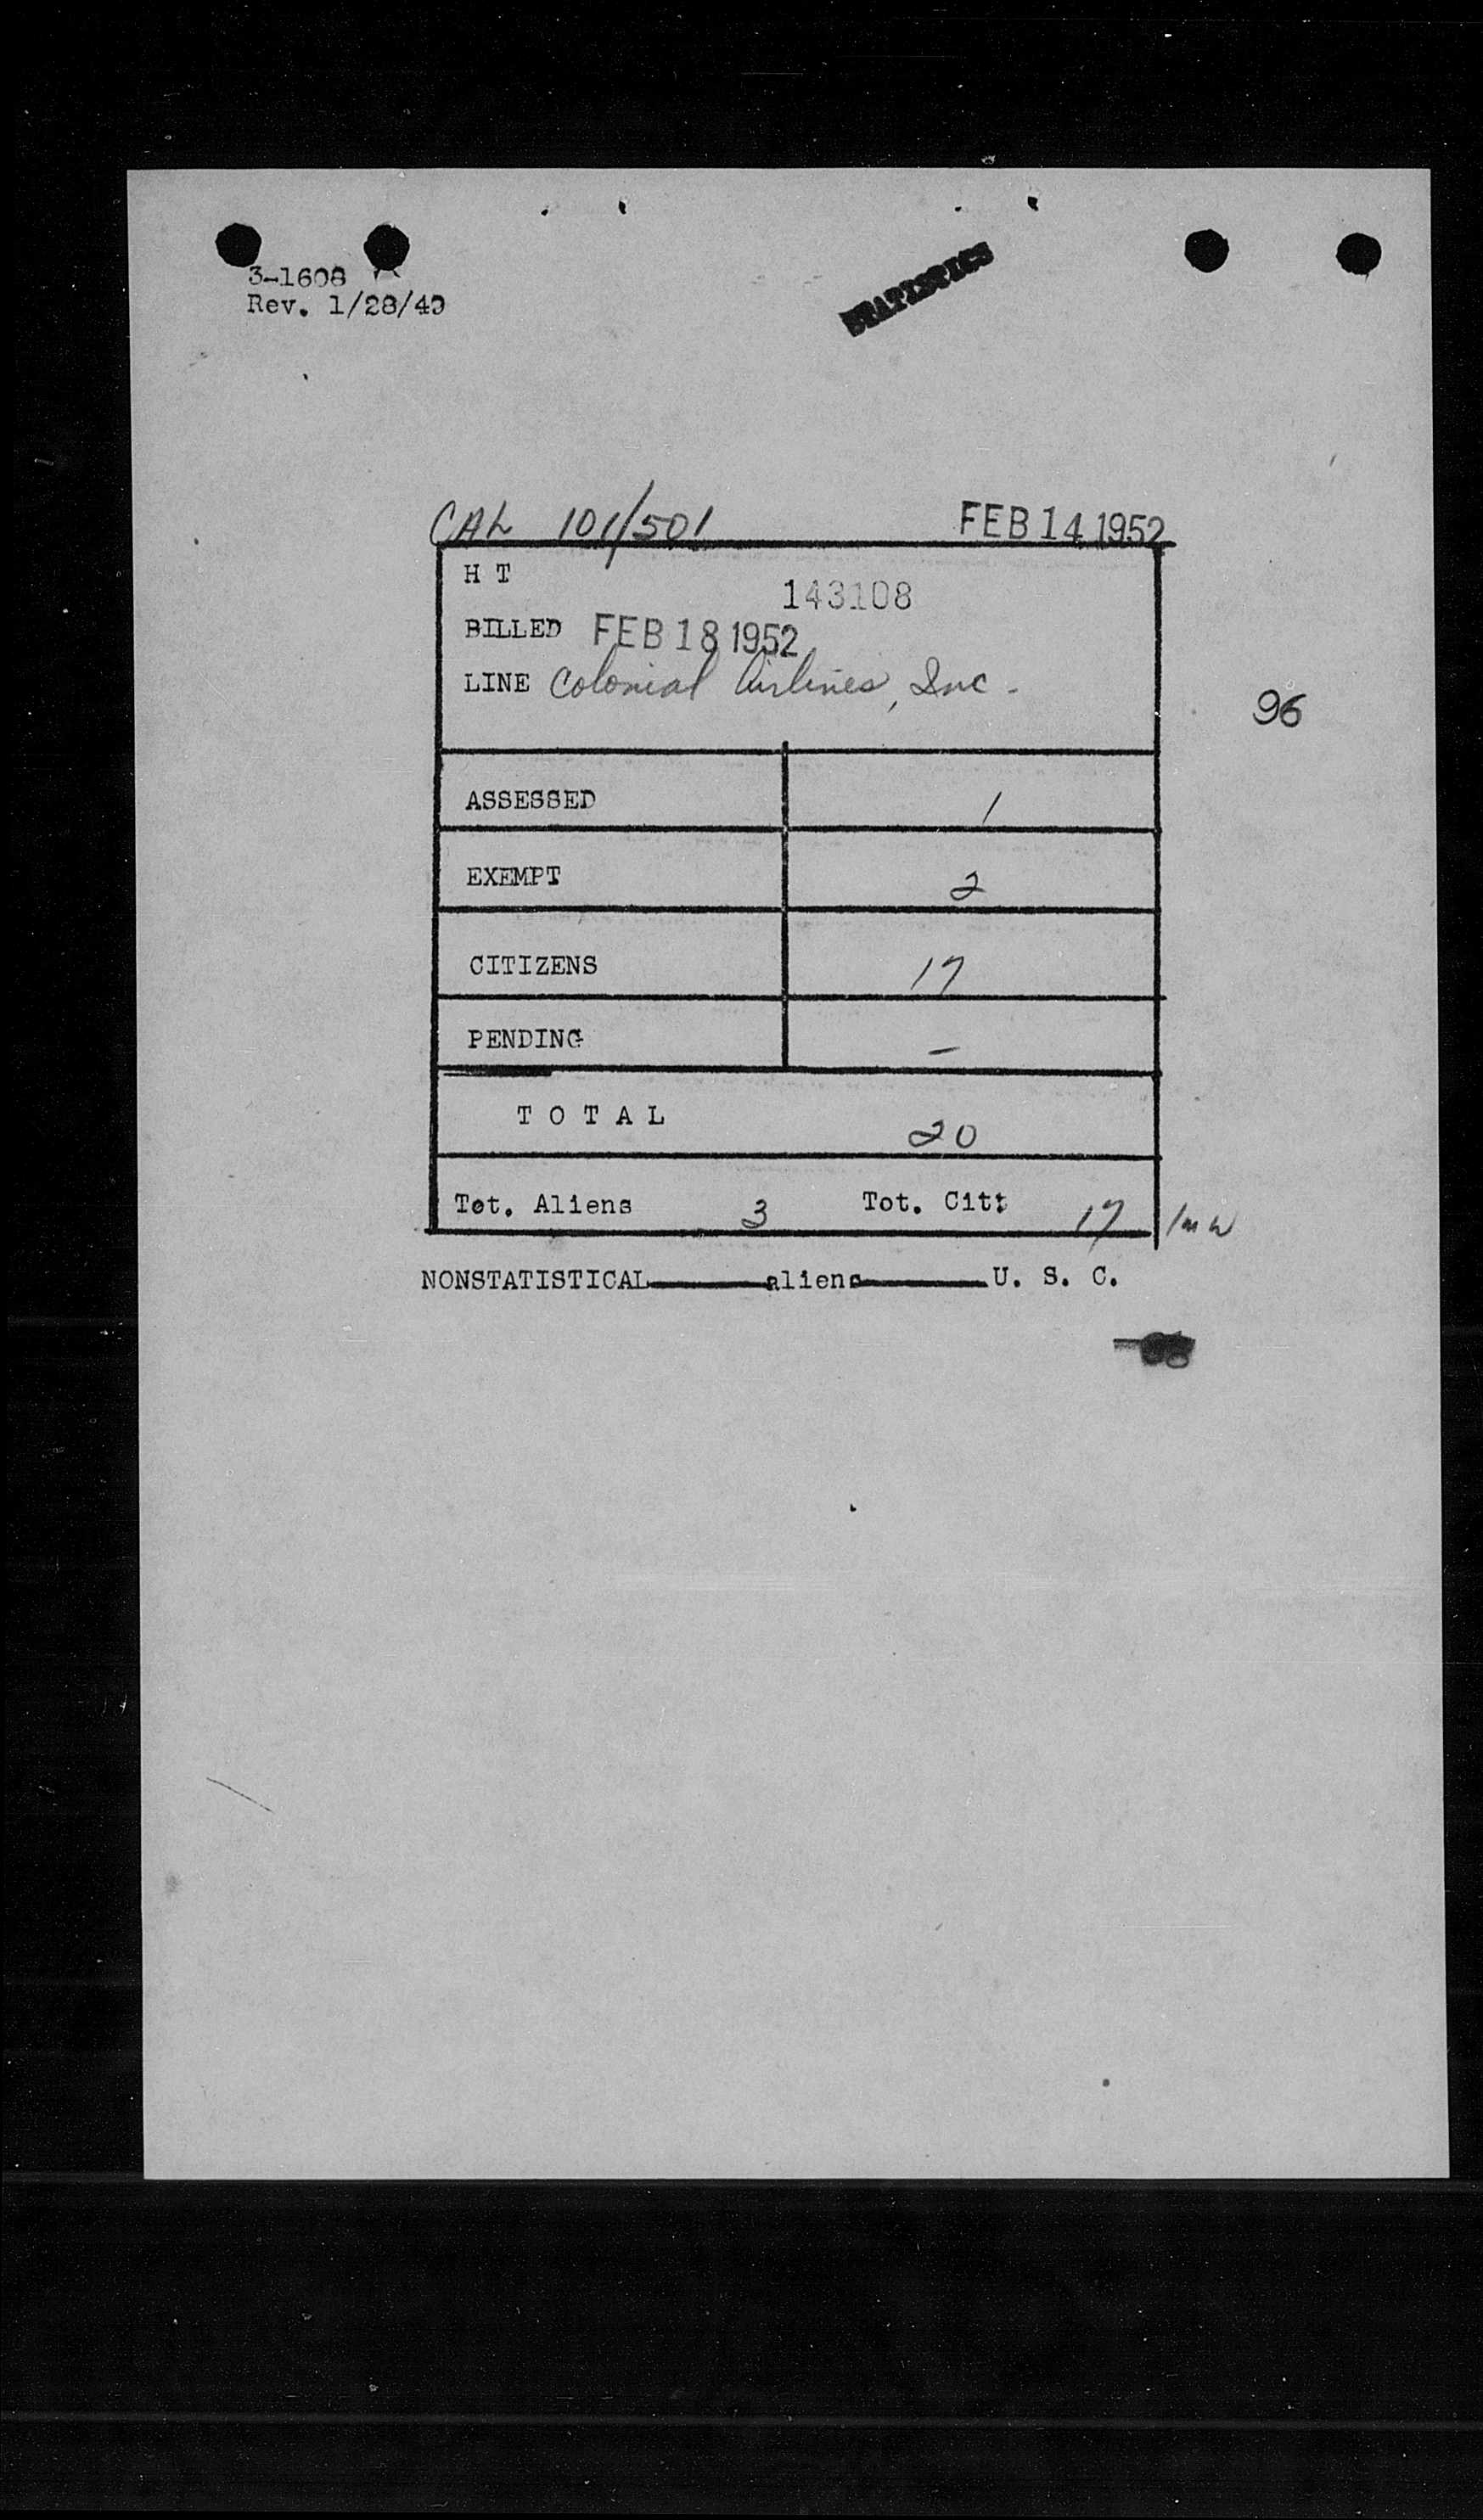 3-1608
Rev. 1/28/49
STATISTICS
CAL 101/501 FEB 14 1952
H T
143108
BILLED FEB 18 1952
LINE Colonial Airlines, Inc.
96
ASSESSED 1
EXEMPT 2
CITIZENS 17
PENDING –
T O T A L 20
Tot. Aliens 3 Tot. Citt 17
NONSTATISTICAL aliens U. S. C.